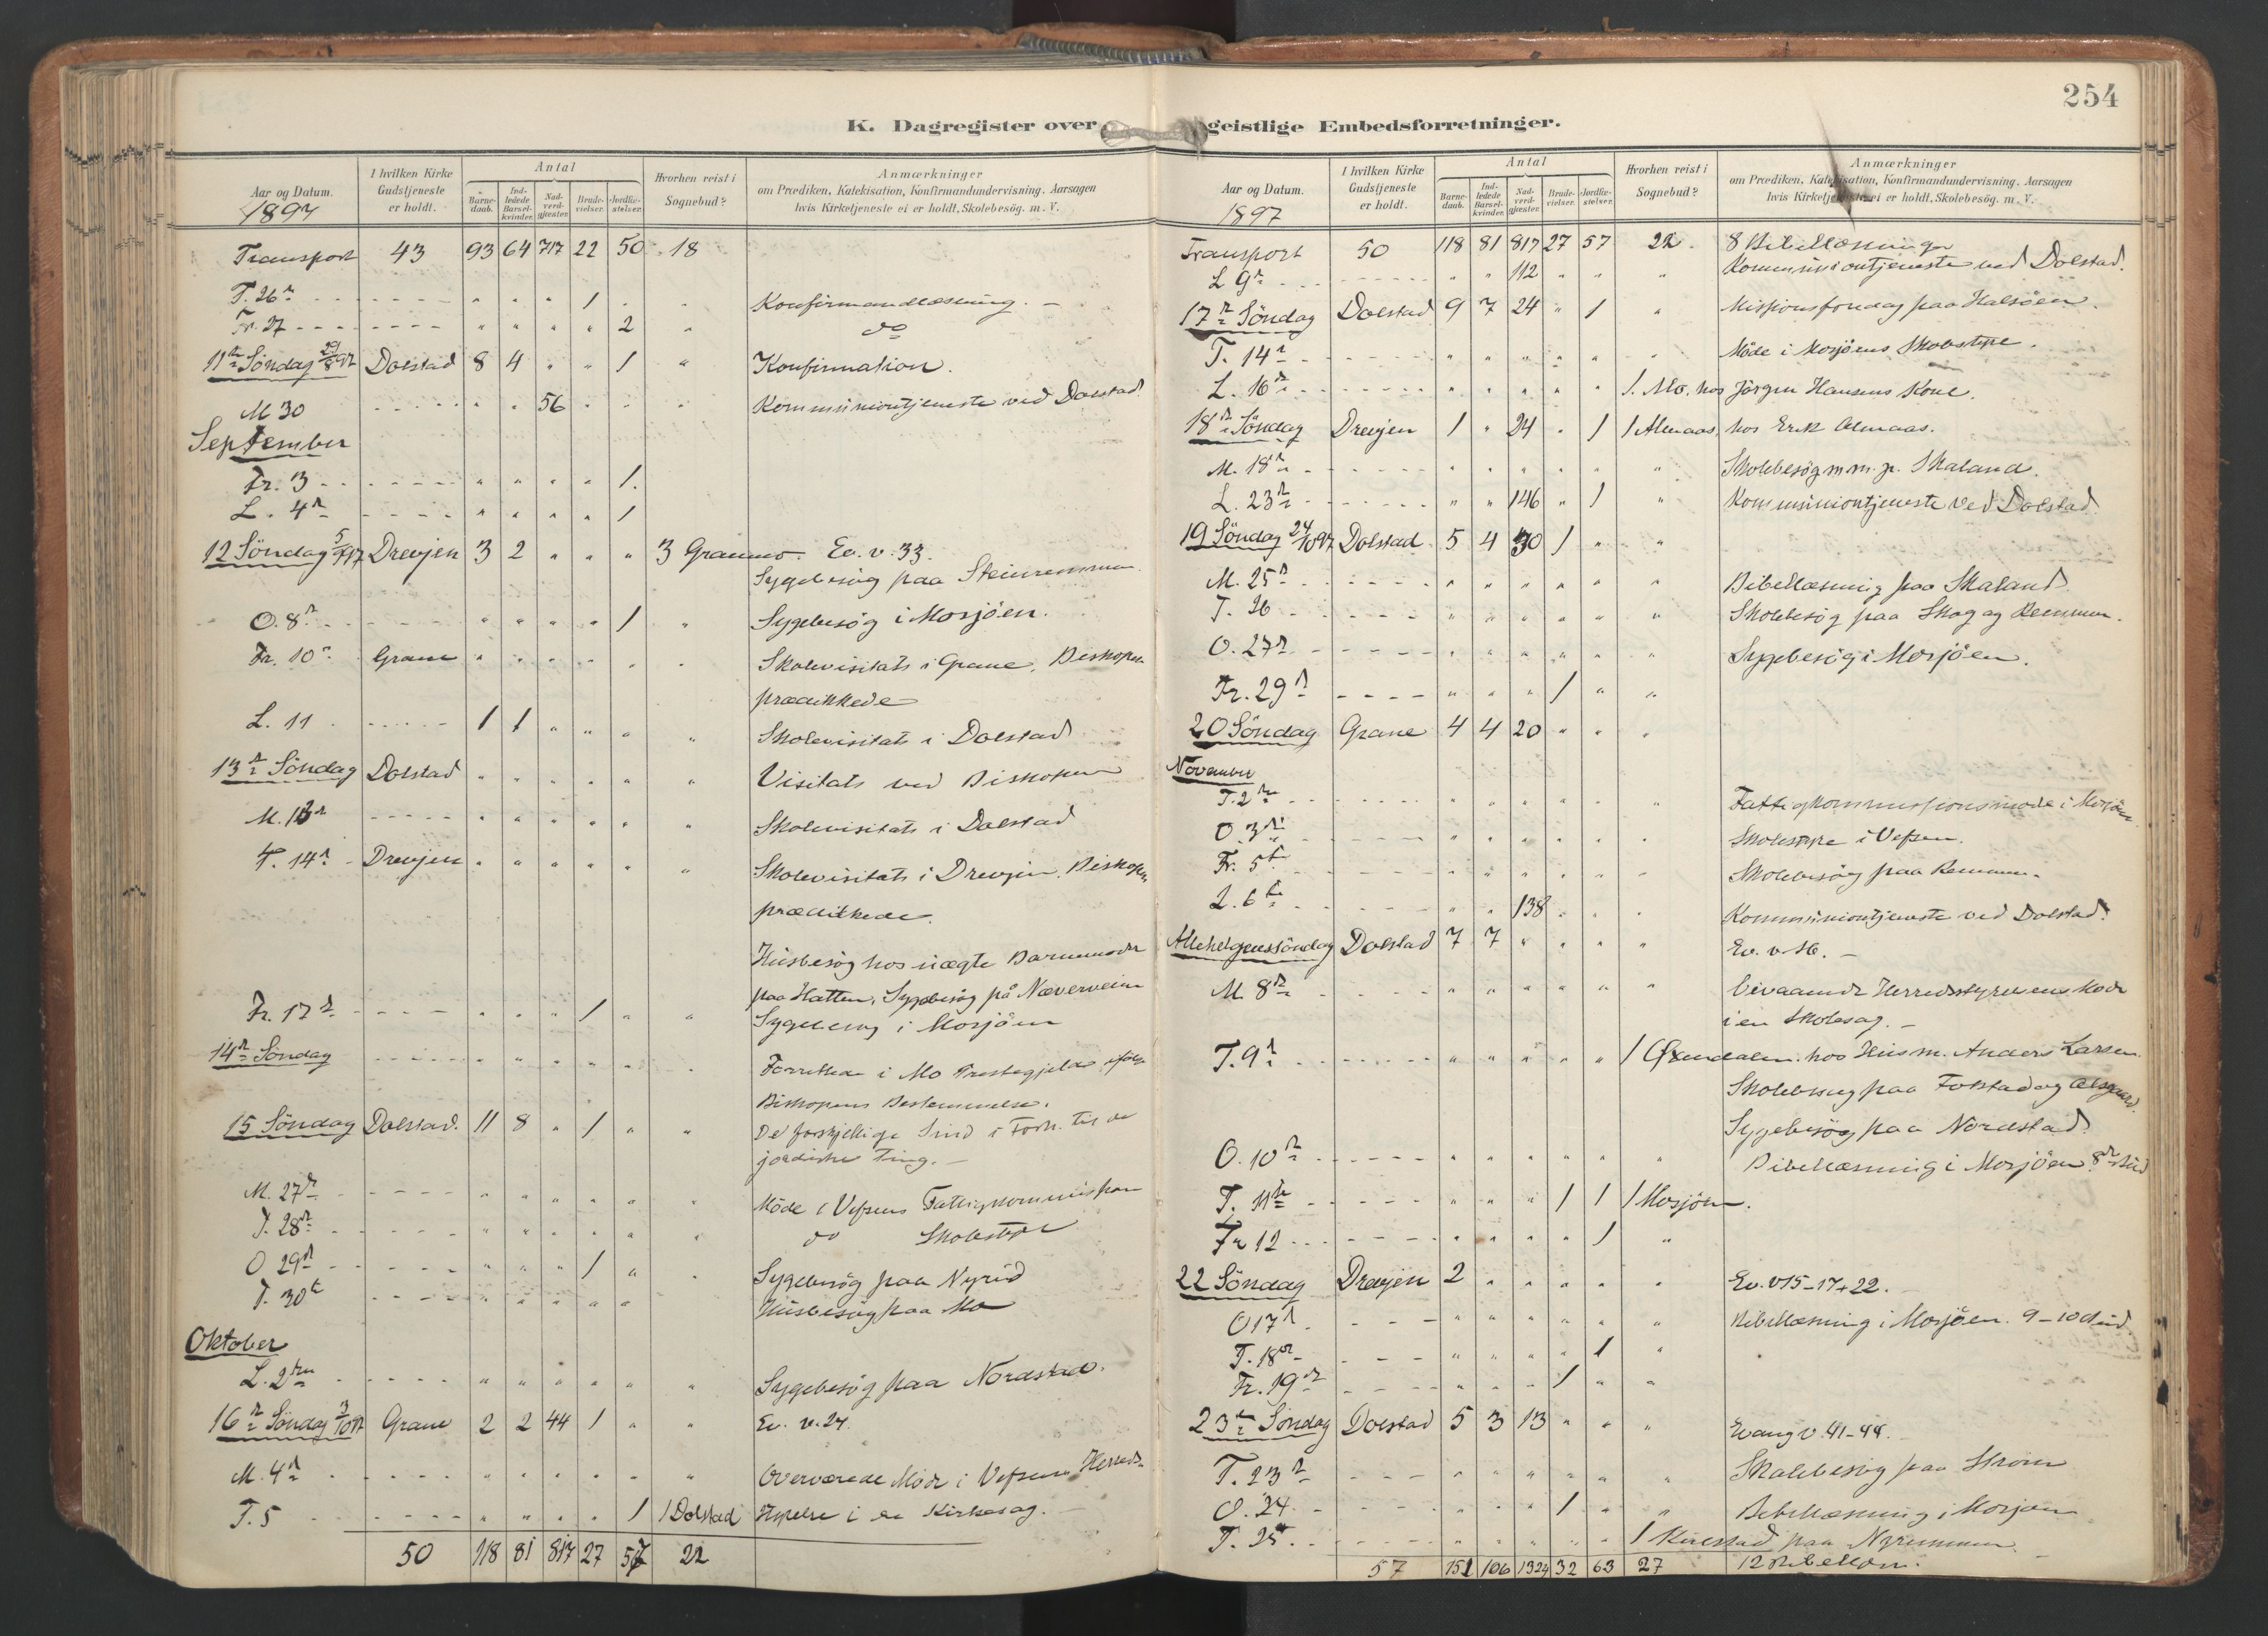 254
K. Dagregister over geistlige Embedsforretninger.
Aar og Datum. 1897 | I hvilken Kirke Gudstjeneste er holdt. | Antal | Barnedaab. | Indledede Barselkvinder. | Nadverdgjester. | Brudevielser. | Jordfæstelser. | Hvorhen reist i Sognebud? | Anmærkninger om Prædiken, Katekisation, Konfirmandundervisning. Aarsagen hvis Kirketjeneste ei er holdt, Skolebesøg. m. V.
Transport 43 93 64 717 22 50 18
T. 26de - - - " " " 1 " " Konfirmandlæsning. -
Fr. 27 - - - " " " " 2 " do
11te Søndag 29/8 97 Dolstad 8 4 " " 1 " Konfirmation.
M 30 - - - " " 56 " " " Kommuniontjeneste ved Dolstad
September
Fr. 3 - - - " " " " 1.
L. 4de - - - " " " " 1
12 Søndag 5/9 97 Drevjen 3 2 " " " 3 Granmo. Ev. v. 33.
Sygebesøg paa Steinremmen
O. 8de - - - " " " " 1 " Sygebesøg i Mosjøen.
Fr. 10de Grane " " " " " " Skolevisitats i Grane. Biskopen
prædikede
L. 11 - - - 1 1 " " " " Skolevisitats i Dolstad
13de Søndag Dolstad " " " " " " Visitats ved Biskopen
M. 13de - - - " " " " " " Skolevisitats i Dolstad
T. 14de - Drevjen " " " " " " Skolevisitats i Drevjen. Biskopen
prædikede.
Husbesøg hos uægte Barnemoder
paa Hatten, Sygebesøg på Næverveien
Fr. 17de - - - " " " 1 " " Sygebesøg i Mosjøen
14de Søndag - - - " " " " " " Forrettede i Mo Prestegjeld ifølge
Biskopens Bestemmelse.
15 Søndag Dolstad. 11 8 " 1 " " De forskjellige Sind i Forh. til de
jordiske Ting. -
M. 27de - - - " " " " " " Møde i Vefsens Fattigkommission
T. 28de - - - " " " " " " do Skolestyre
O 29de - - - " " " 1 " " Sygebesøg paa Nyrud
T. 30te - - - " " " " " Husbesøg paa Mo
Oktober
L. 2den - - - " " " " " " Sygebesøg paa Nordstad.
16de Søndag 3/10 97 Grane 2 2 44 1 " " Ev. v. 24.
M. 4de - - - " " " " " " Overværede Møde i Vefsens Herreds-
T. 5 - - - " " " " 1 1 Dolstad styrelse i en Kirkesag. -
50 118 81 817 27 57 22
Aar og Datum. 1897 | I hvilken Kirke Gudstjeneste er holdt. | Antal | Barnedaab. | Indledede Barselkvinder. | Nadverdgjester. | Brudevielser. | Jordfæstelser. | Hvorhen reist i Sognebud? | Anmærkninger om Prædiken, Katekisation, Konfirmandundervisning. Aarsagen hvis Kirketjeneste ei er holdt, Skolebesøg. m. V.
Transport 50 118 81 817 27 57 22. 8 Bibellæsninger
L 9de - - - " " 112 " " " Kommuniontjeneste ved Dolstad.
17de Søndag Dolstad 9 7 24 " 1 " Missionsforedrag paa Halsøen.
T. 14de - - - " " " " " " Møde i Mosjøens Skolestyre.
L. 16de - - - " " " " " 1. Mo. hos Jörgen Hansens Kone.
18de Søndag Drevjen 1 " 24 " 1 1 Almaas, hos Erik Almaas.
M. 18de - - - " " " " " " Skolebesøg m.m. p. Skaland.
L. 23de - - - " " 146 " 1 " Kommuniontjeneste ved Dolstad
19 Søndag 24/10 97 Dolstad 5 4 30 1 " "
M. 25de - - - " " " " " " Bibellæsning paa Skaland
T. 26 - - - " " " " " " Skolebesøg paa Skog og Remmen.
O. 27de - - - " " " " " " Sygebesøg i Mosjøen.
Fr. 29de - - - " " " 1 " "
20 Søndag Grane 4 4 20 " " "
November
T. 2den - - - " " " " " " Fattigkommissionsmøde i Mosjøen.
O. 3die - - - " " " " " " Skolestyre i Vefsen.
Fr. 5te - - - " " " " " " Skolebesøg paa Remmen.
L. 6te - - - " " 138 " " " Kommuniontjeneste ved Dolstad.
Allehelgenssöndag Dolstad 7 7 " " " " Ev. v. 16. -
M. 8de - - - " " " " " " bivaanede Herredsstyrelsens Møde
i en Skolesag. -
T. 9de - - - " " " " " 1 Øxendalen. hos Husm. Anders Larsen
Skolebesøg paa Folstad og Olsgaard.
Sygebesøg paa Nordstad.
O. 10de - - - " " " " " " Bibellæsning i Mosjøen 8de Aud
T. 11te - - - " " " 1 1 1 Mosjøen.
Fr 12 - - - " " " " 1 "
22 Søndag Drevjen 2 " " " " " Ev. v 15-17+22.
O 17de - - - " " " " " " Bibellæsning i Mosjøen. 9-10 Aud
T. 18de - - - " " " " 1 "
Fr. 19de - - - " " " 1 " "
23de Søndag Dolstad 5 3 13 " " " Evang v. 41-44.
T. 23de - - - " " " " " " Skolebesøg paa Strøm
O. 24 - - - " " " 1 " " Bibellæsning i Mosjøen
T. 25te - - - " " " " " 1 Kulstad paa Nyremmen
57 151 106 1324 32 63 27 12 Bibellæsn.